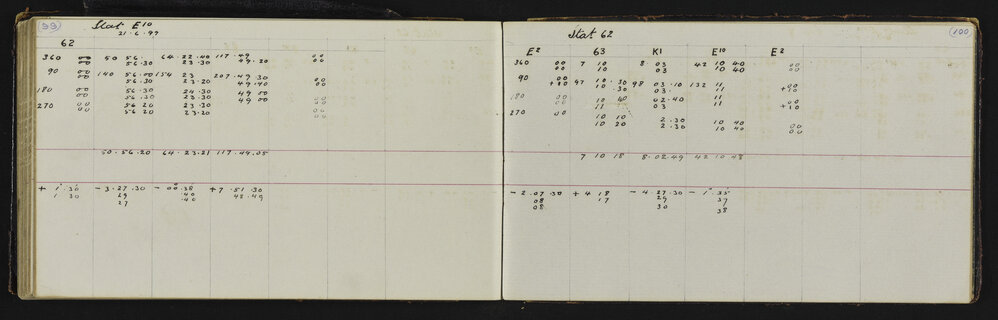 (99) Stat E10
21.6.99
62
360 00 50 56. 64.22.40 117.49 00
00 56.30 23.30 49.20 00
90 00 140 56.00 154 23 207.49.30
00 56.30 23.20 49.40 00
180 00 56.30 24.30 49 00 00
00 56.30 23.30 49 00
270 00 56 20 23.30 00
00 56 20 23.30 00
50.56.20 64.23.21 117.49.05
+ 1 30 - 3.27.30 - 00.38 + 7.51.30
1 30 29 40 48.49
27 .40
Stat 62 (100)
E2 63 K1 E10 E2
360 00 7 10 8 03 42 10 40 00
00 10 03 10 40 00
90 00 97 10.30 98 03.10 132 11 00
+00 .30 03. 11 +10
180 00 10 40 02.40 11 00
00 11 03 11 +10
270 00 10 10 2.30 10 40 00
10 20 2.30 10 40 00
7 10 18 8.02.49 42 10 48
- 2.07.30 + 4 18 - 4 27.30 - 1.35
08 17 29 37
08 30 38